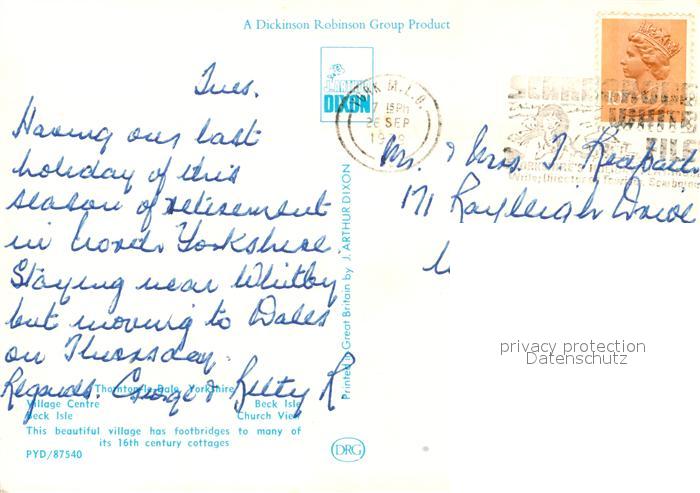 A Dickinson Robinson Group Product
Tues.
Having our last
holiday of this
season of retirement
in North Yorkshire.
Staying near Whitby
but moving to Dales
on Thursday.
Regards. George & Betty R
Thornton-le-Dale, Yorkshire
Village Centre Beck Isle
Beck Isle Church View
This beautiful village has footbridges to many of
its 16th century cottages
PYD/87540
J. ARTHUR
DIXON
Printed in Great Britain by J. ARTHUR DIXON
DRG
YORK M.L.O.
7 15PM
26 SEP
Mr. & Mrs. T.
171 Rayleigh Drive
privacy protection
Datenschutz